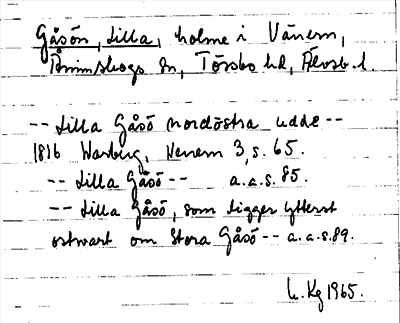 Gåsön, Lilla, holme i Vänern,
Ånimskogs sn, Tössbo hd, Älvsb. l.
-- Lilla Gåsö nordöstra udde --
1816 Warberg, Wenern 3, s. 65.
-- Lilla Gåsö -- a.a.s. 85.
-- Lilla Gåsö, som ligger ytterst
ostwart om Stora Gåsö -- a.a.s. 89.
Kg 1965.